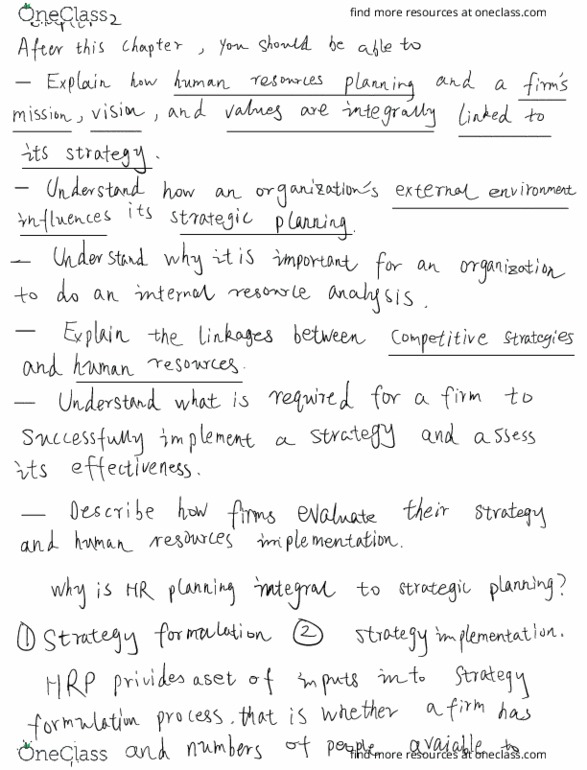 OneClass
find more resources at oneclass.com
2
After this chapter, you should be able to
— Explain how human resources planning and a firm's
mission, vision, and values are integrally linked to
its strategy.
— Understand how an organization's external environment
influences its strategic planning.
— Understand why it is important for an organization
to do an internal resource analysis.
— Explain the linkages between competitive strategies
and human resources.
— Understand what is required for a firm to
successfully implement a strategy and assess
its effectiveness.
— Describe how firms evaluate their strategy
and human resources implementation.
why is HR planning integral to strategic planning?
① Strategy formulation ② strategy implementation.
HRP privides a set of inputs into strategy
formulation process. that is whether a firm has
OneClass and numbers of people avaiable to
find more resources at oneclass.com